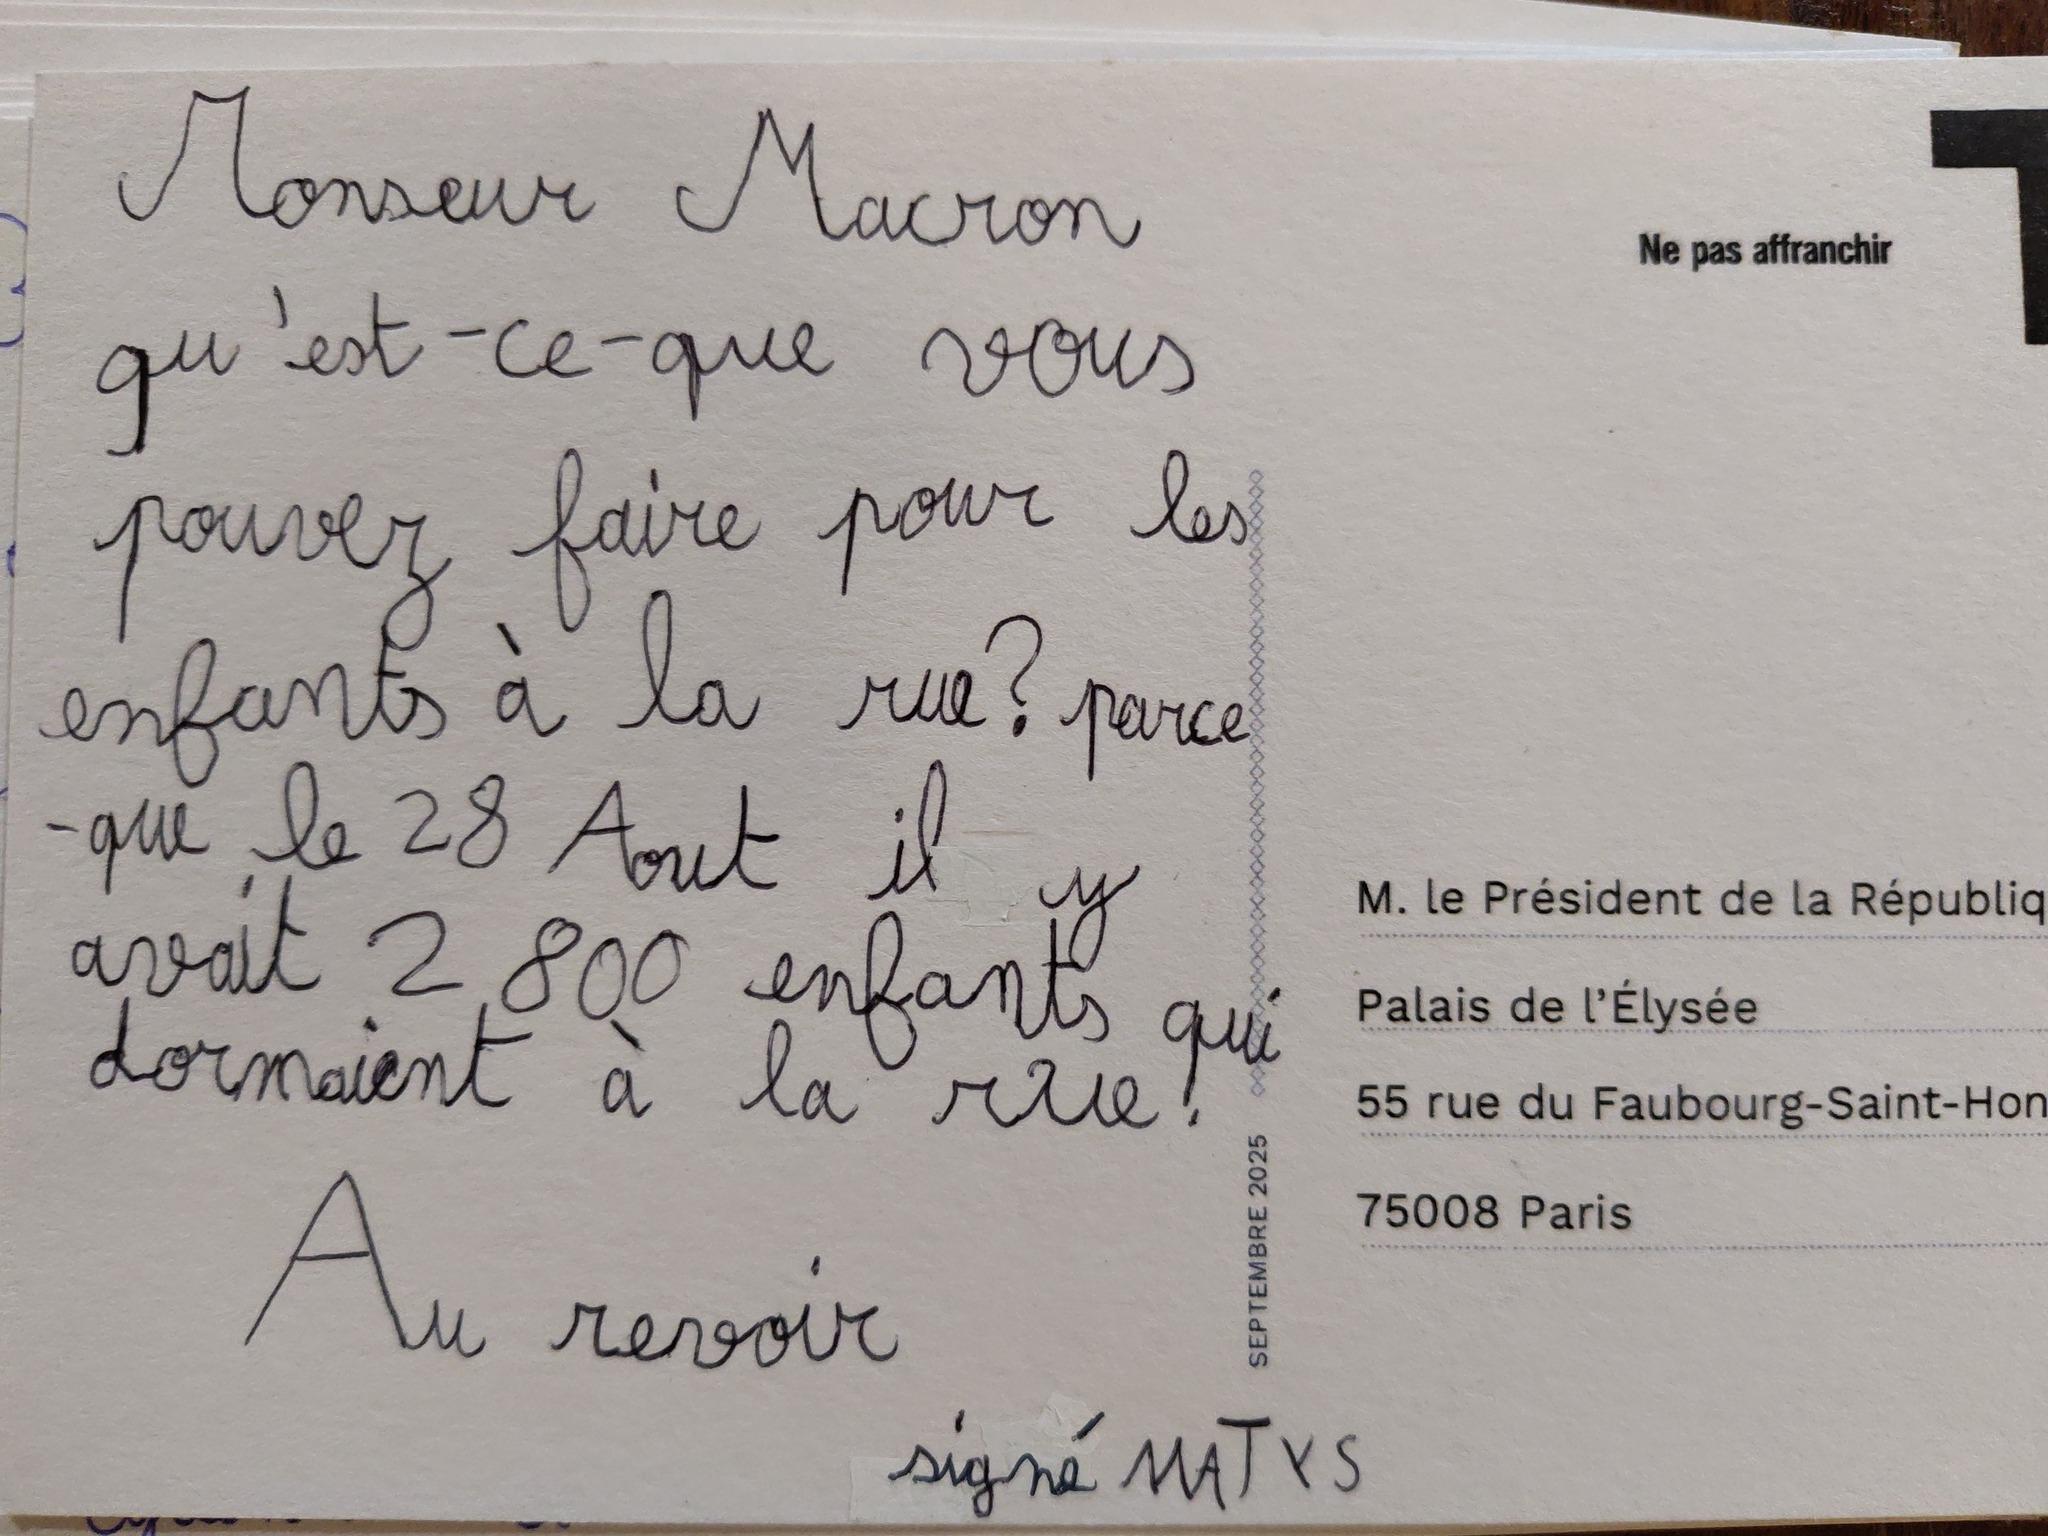 Monseur Macron
qu'est-ce-que vous
pouvez faire pour les
enfants à la rue? parce
-que le 28 Aout il y
avait 2 800 enfants qui
dormaient à la rue!
Au revoir
signé MATYS
Ne pas affranchir
M. le Président de la Républiq
Palais de l'Élysée
55 rue du Faubourg-Saint-Hon
75008 Paris
SEPTEMBRE 2025